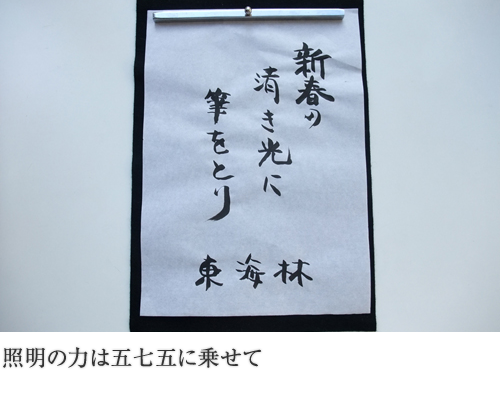 新春の
清き光に
筆をとり
東海林
照明の力は五七五に乗せて